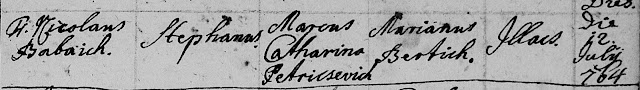 Fr. Nicolaus
Babaich.
Stephanus.
Marcus
Catharina
Petricsevich
Marianus
Bertich.
Illacs.
Dres.
Die
12.
July
764